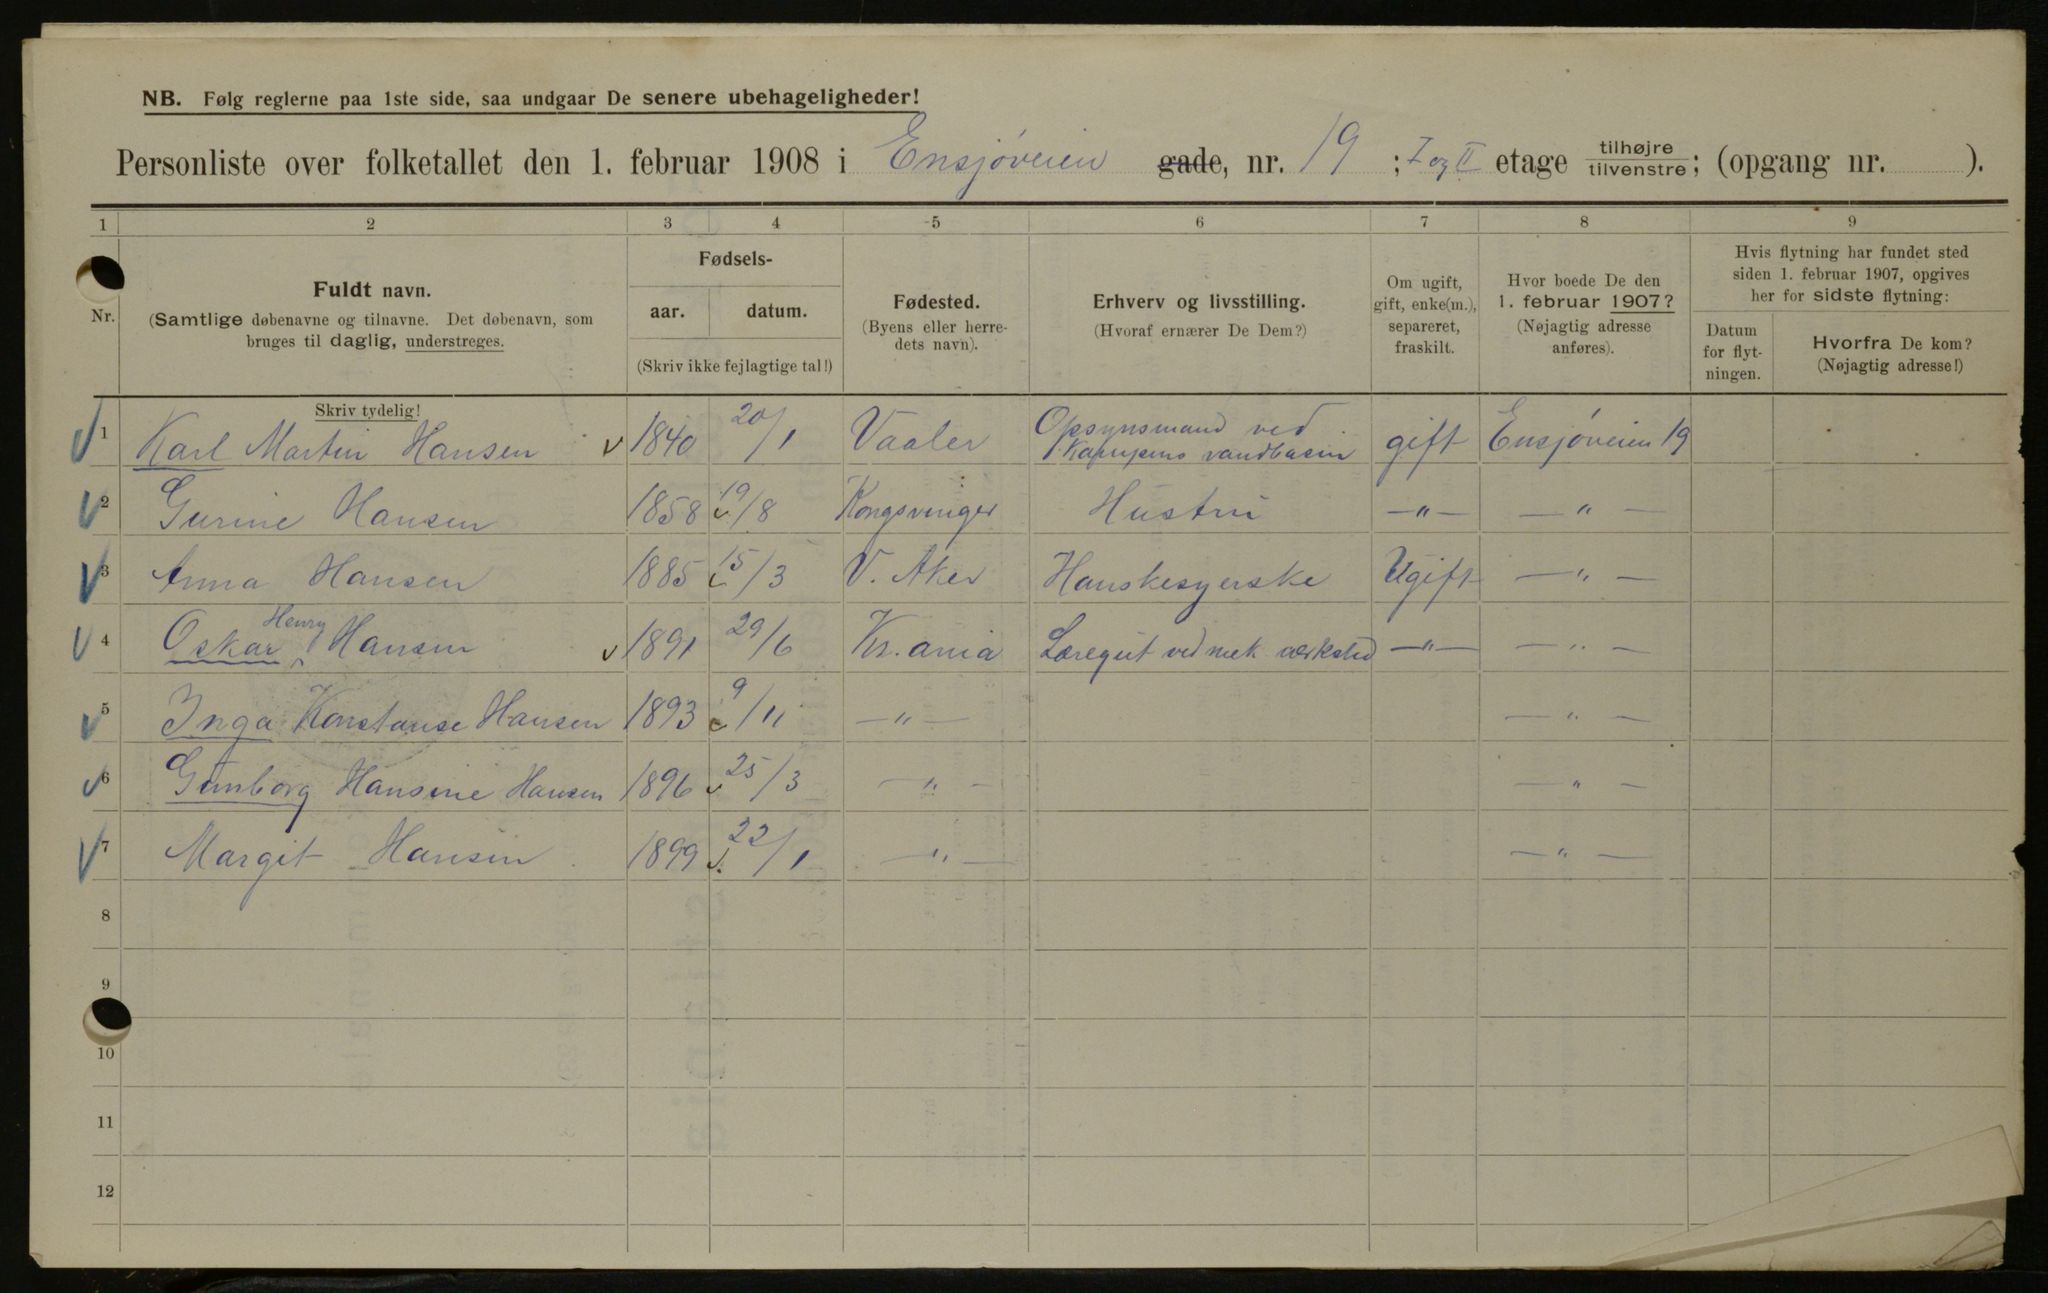 NB. Følg reglerne paa 1ste side, saa undgaar De senere ubehageligheder!
Personliste over folketallet den 1. februar 1908 i Ensjøveien gade, nr. 19 ; I og II etage tilhøjre tilvenstre; (opgang nr. ).
1 2 3 4 5 6 7 8 9
Nr.
Fuldt navn.
(Samtlige døbenavne og tilnavne. Det døbenavn, som
bruges til daglig, understreges.
Skriv tydelig!
Fødsels-
aar. datum.
(Skriv ikke fejlagtige tal!)
Fødested.
(Byens eller herre-
dets navn).
Erhverv og livsstilling.
(Hvoraf ernærer De Dem?)
Om ugift,
gift, enke(m.),
separeret,
fraskilt.
Hvor boede De den
1. februar 1907?
(Nøjagtig adresse
anføres).
Hvis flytning har fundet sted
siden 1. februar 1907, opgives
her for sidste flytning:
Datum
for flyt-
ningen.
Hvorfra De kom?
(Nøjagtig adresse!)
1 Karl Martin Hansen 1840 20/1 Vaaler Opsynsmand ved Kampens vandbasin gift Ensjøveien 19
2 Gurine Hansen 1858 19/8 Kongsvinger Hustru —"— — " —
3 Anna Hansen 1885 15/3 V. Aker Hanskesyerske Ugift — " —
4 Oskar Henry Hansen 1891 29/6 Kr.ania Læregut ved mek. værksted —"— — " —
5 Inga Konstanse Hansen 1893 9/11 —"— — " —
6 Gunborg Hansine Hansen 1896 25/3 — " — — " —
7 Margit Hansen 1899 22/1 — " — — " —
8
9
10
11
12